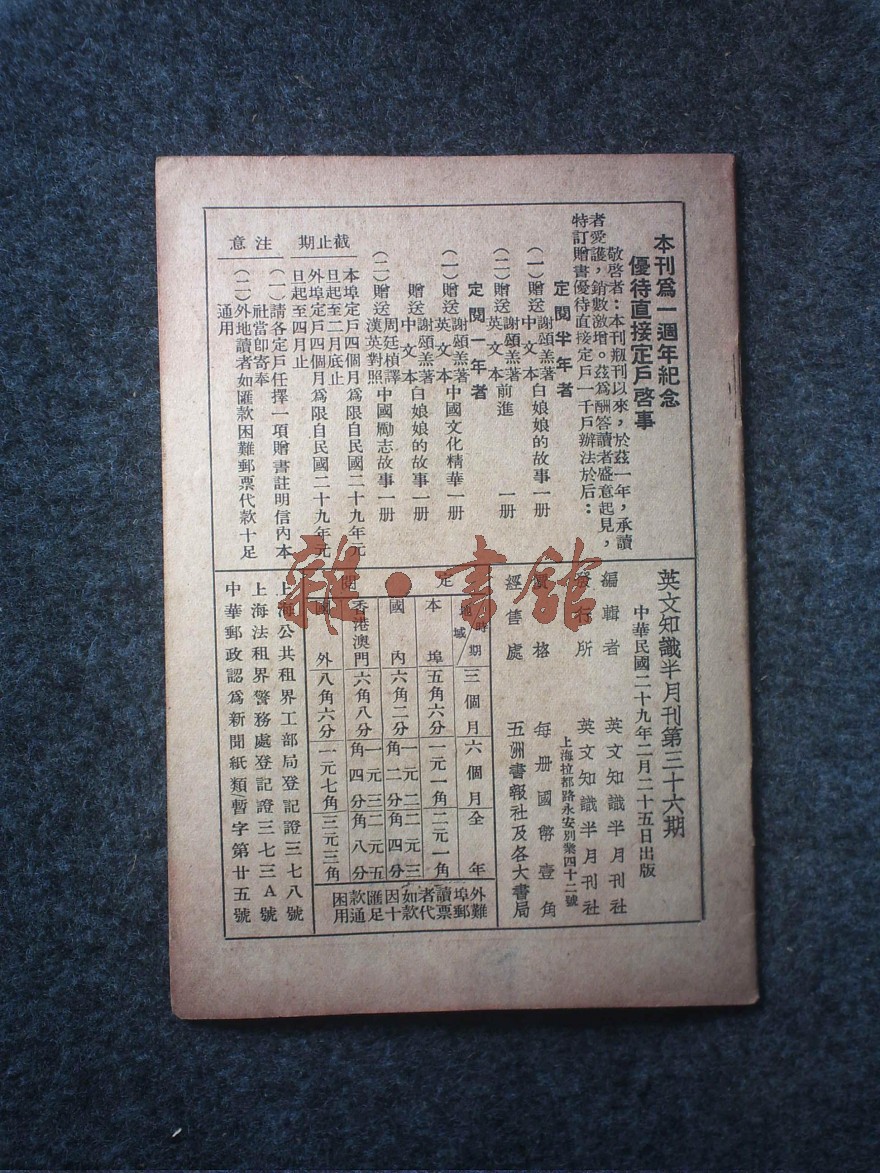 本刊爲一週年紀念
優待直接定戶啓事
敬啓者:本刊瓶刊以來,於茲一年,承讀
者愛護,銷數激增。茲爲酬答讀者盛意起見,
特訂贈書優待直接定戶一千戶辦法於后:
定閱半年者
(一)贈送謝頌羔著中文本白娘娘的故事一册
(二)贈送謝頌羔著英文本前進 一册
定閱一年者
(一)贈送謝頌羔著英文本中國文化精華一册
贈送謝頌羔著中文本白娘娘的故事一册
(二)贈送周廷楨譯漢英對照中國勵志故事一册
截止期
本埠定戶四個月爲限自民國二十九年元
旦起至二月底止
外埠定戶四個月爲限自民國二十九年元
旦起至四月止
注意
(一)請各定戶任擇一項贈書註明信內本
社當卽寄奉
(二)外地讀者如匯款困難郵票代款十足
通用
英文知識半月刊第三十六期
中華民國二十九年二月二十五日出版
編輯者 英文知識半月刊社
發行所 英文知識半月刊社
上海拉都路永安別業四十二號
價格 每册國幣壹角
經售處 五洲書報社及各大書局
定閱
時期 地域 三個月 六個月 全年
本埠 五角六分 一元一角 二元一角
國內 六角二分 一元二角二分 二元三角四分
香港澳門 六角八分 一元三角四分 二元五角八分
國外 八角六分 一元七角 三元三角
外埠讀者如因匯款困
難郵票代款十足通用
上海公共租界工部局登記證三七八號
上海法租界警務處登記證三七三A號
中華郵政認爲新聞紙類暫字第廿五號
雜·書館